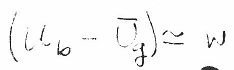 (U_b - Ū_g) ≃ w